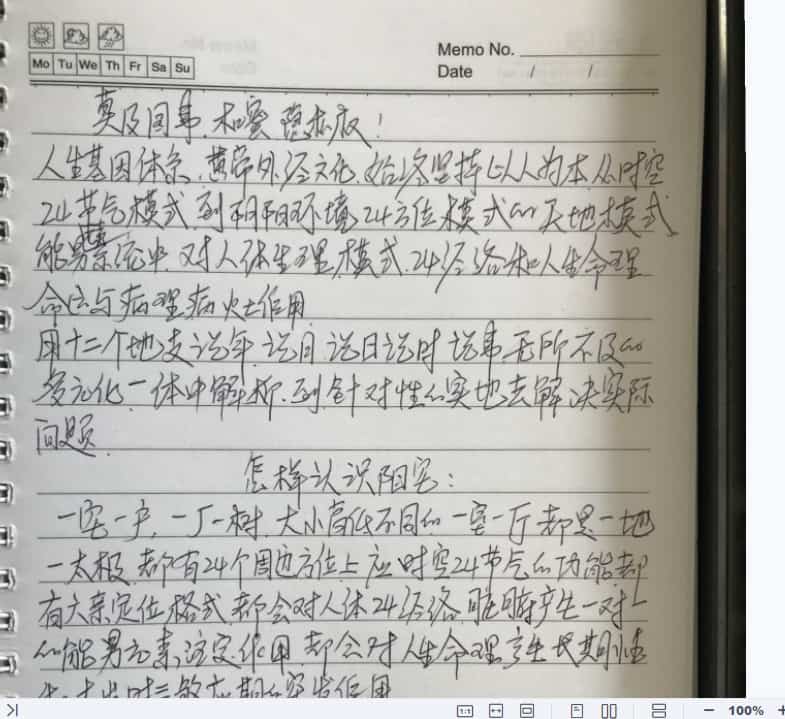 Memo No.
Mo Tu We Th Fr Sa Su
Date / /
人生基因体系,黄帝外经文化,始终坚持以人为本,从时空
24节气模式,到阴阳环境24方位模式的天地模式
能量论中,对人体生理模式,24经络和人生命理
命运与病理病灶作用
用十二个地支说年,说月,说日说时,说事无所不及的
多元化一体中解析,到针对性的实地去解决实际
问题.
怎样认识阳宅:
一宅一户,一厂一树,大小高低不同的一室一厅都是一地
一太极,都有24个周边方位上应时空24节气的功能都
有六亲定位格式,都会对人体24经络,脏腑产生一对一
的能男元素注定作用,都会对人生命理产生长期性
1:1
100%